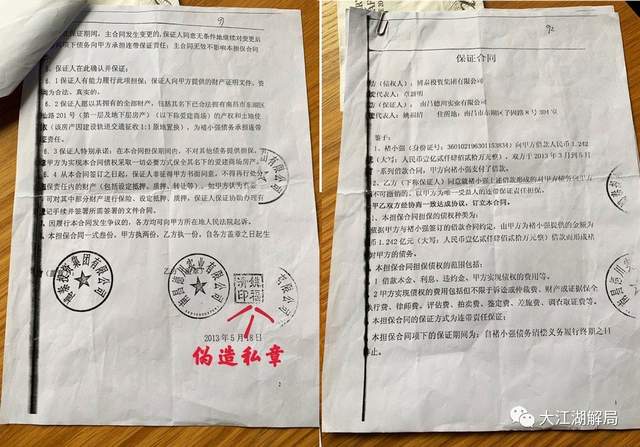 保证期间，主合同发生变更的，保证人同意无条件地继续对变更后
项下债务向甲方承担连带保证责任；主合同无效不影响本担保合同
保证人在此确认并保证：
6.1 保证人有能力履行此项担保；保证人向甲方提供的财产证明文件、资
为合法、真实的。
6.2 保证人愿以其拥有的全部财产，包括其名下已合法拥有南昌市东湖区
路 201 号（第一层及地下层房产）（以下称爱建商场）的产权和土地使
（该房产因建设轨道交通征收 1:1 原地置换），为褚小强债务承担连带
证责任。
6.3 保证人特别承诺：在本合同担保期间内，不对其他债务提供担保，
甲方为实现本合同债权采取一切必要方式保全其名下的爱建商场房产。
6.4 从本合同签订之日起，保证人非征得甲方书面同意，不得再行处分
保责任内的财产（包括设定抵押、质押、转让等），如甲方认为
可对其中部分财产进行保险、设定抵押、质押，保证人保证协助办理有
记手续并签署所需签署的文件合同。
因履行本合同发生争议的，各方均可向甲方所在地人民法院起诉。
本担保合同一式叁份，甲方执两份，乙方执一份，自各方盖章之日起生
投资集团有限公司
南昌德川实业有限公司
有限公司
2013 年 5 月 18 日
伪造私章
2
保证合同
（债权人）：博泰投资集团有限公司
代表人：章新明
（保证人）：南昌德川实业有限公司
代表人：姚福清 住所地：南昌市东湖区子固路 8 号 394 室
鉴于：
1、褚小强（身份证号：360102196301153834）向甲方借款人民币 1.242
（大写：人民币壹亿贰仟肆佰贰拾万元整），双方于 2013 年 3 月到 5 月
一系列借款合同，甲方向褚小强支付了借款。
2、乙方（下称保证人）同意就褚小强上述借款形成的对甲方债务向甲方
不可撤销的、以甲方为唯一受益人的连带保证责任担保。
甲乙双方经协商一致达成协议，订立本合同。
本担保合同担保的债权种类为：
根据甲方与褚小强签订的借款合同约定，由甲方为褚小强提供的金额为
币 1.242 亿元（大写：人民币壹亿贰仟肆佰贰拾万元整）借款而形成褚
对甲方的债务。
本担保合同担保债权的范围包括：
1 借款本金、利息、违约金、甲方实现债权的费用等。
2 甲方实现债权的费用包括但不限于诉讼或仲裁费、财产或证据保全
执行费、律师费、评估费、拍卖费、鉴定费、差旅费、调查取证费等。
本担保合同的保证方式为连带责任保证：
本担保合同项下的保证期间为：自褚小强债务清偿义务履行终期之日
止。
1
大江湖解局